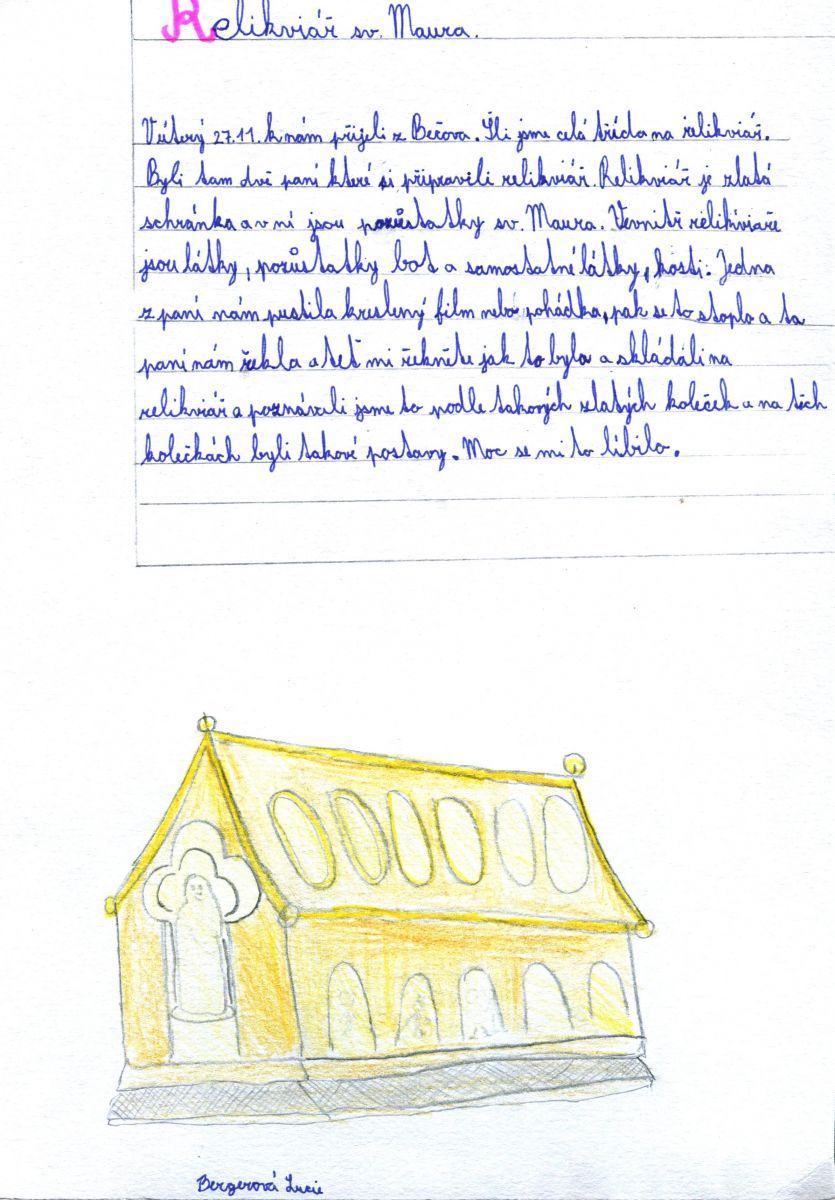 Relikviář sv. Maura.
V úterý 27.11. k nám přijeli z Bečova. Šli jsme celá třída na relikviář.
Byli tam dvě paní které si připravili relikviář. Relikviář je zlatá
schránka a v ní jsou pozůstatky sv. Maura. Vevnitř relikviaře
jsou látky, pozůstatky bot a samostatné látky, kosti. Jedna
z paní nám pustila kreslený film nebo pohádka, pak se to stoplo a ta
paní nám řekla a teť mi řekněte jak to bylo a skládáli na
relikviář a poznávali jsme to podle takových zlatých koleček a na těch
kolečkách byli takové postavy. Moc se mi to líbilo.
Bergerová Lucie